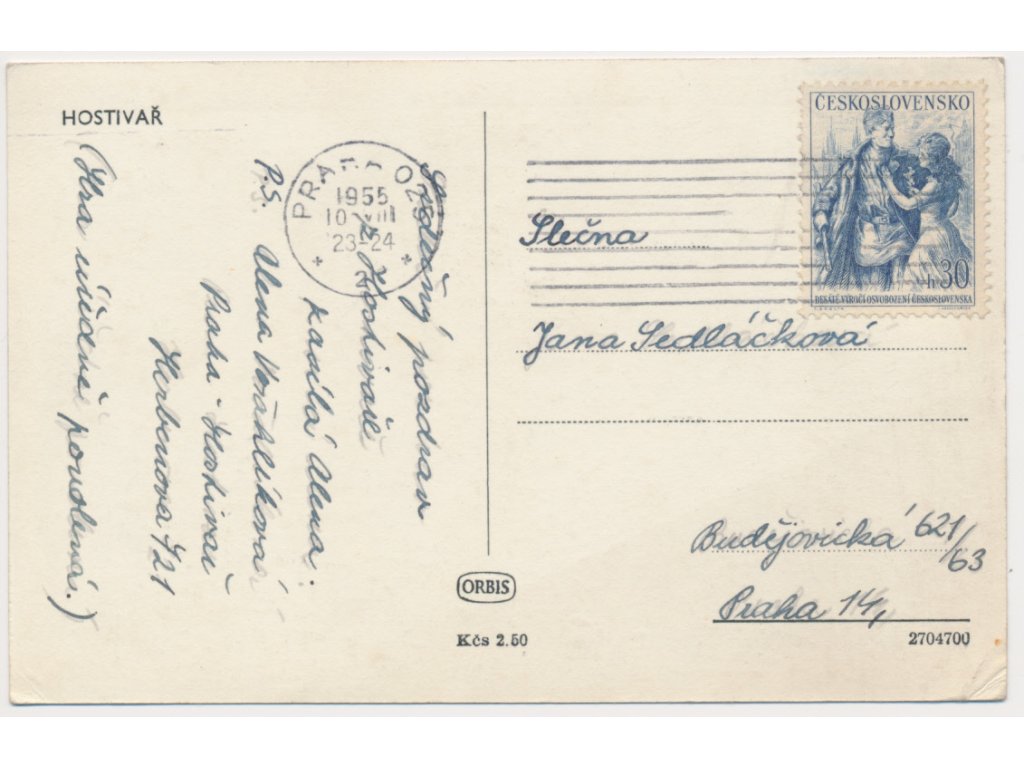 HOSTIVAŘ
Srdečný pozdrav
z Hostivaře
Kamila Alena.
P.S. Alena
Praha - Hostivař
Herbenova
(Hra
PRAHA 029
1955
10 VIII
23-24
ČESKOSLOVENSKO
h 30
DESÁTÉ VÝROČÍ OSVOBOZENÍ ČESKOSLOVENSKA
Slečna
Jana Sedláčková
Budějovická 621/63
Praha 14,
ORBIS
Kčs 2.50
2704700